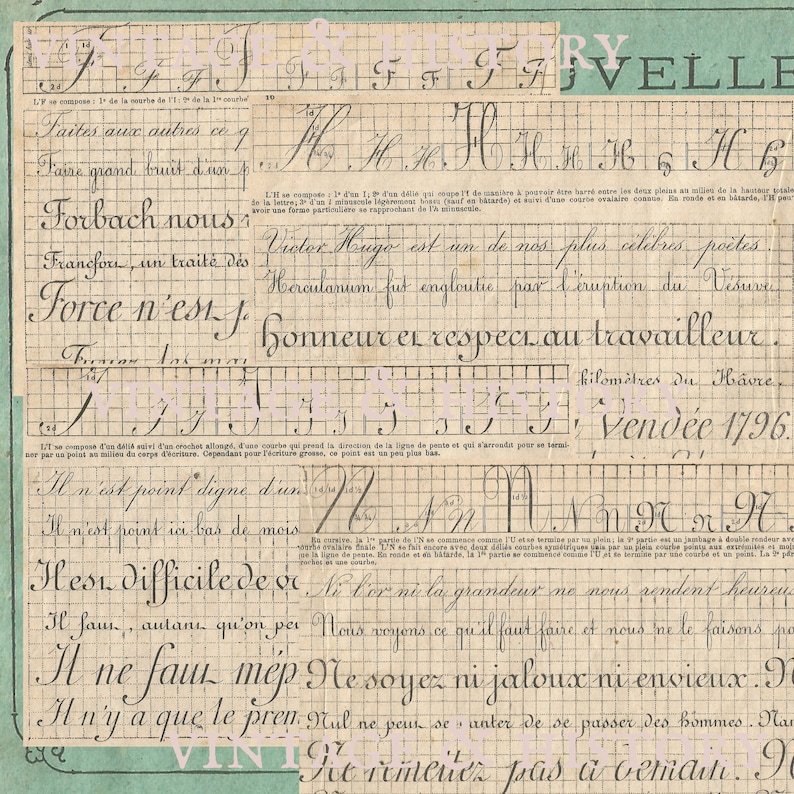 VINTAGE & HISTORY
UVELLE
F F F F F F F F F
2d
L'F se compose : 1° de la courbe de l'I : 2° de la 1re courbe
Faites aux autres ce q
Faire grand bruit d'un p
Forbach nous
Francfort, un traité dés
Force n'est p
10
H H H H H H H h H h
L'H se compose : 1° d'un I; 2° d'un délié qui coupe l'I de manière à pouvoir être barré entre les deux pleins au milieu de la hauteur totale
de la lettre; 3° d'un l minuscule légèrement bossu (sauf en bâtarde) et suivi d'une courbe ovalaire connue. En ronde et en bâtarde, l'H peut
avoir une forme particulière se rapprochant de l'h minuscule.
Victor Hugo est un de nos plus célèbres poètes.
Herculanum fut engloutie par l'éruption du Vésuve
honneur et respect au travailleur.
kilomètres du Hâvre.
Vendée 1796.
VINTAGE & HISTORY
I I I I I I I I I
2d
L'I se compose d'un délié suivi d'un crochet allongé, d'une courbe qui prend la direction de la ligne de pente et qui s'arrondit pour se termi-
ner par un point au milieu du corps d'écriture. Cependant pour l'écriture grosse, ce point est un peu plus bas.
Il n'est point digne d'un
Il n'est point ici bas de mois
Il est difficile de
Il faut, autant qu'on peu
Il ne faut mép
Il n'y a que le prem
N N n N N n N n N N
En cursive, la 1re partie de l'N se commence comme l'U et se termine par un plein; la 2e partie est un jambage à double rondeur
courbe ovalaire finale. L'N se fait encore avec deux déliés courbes symétriques unis par un plein courbe pointu aux extrémités et
que la ligne de pente. En ronde et en bâtarde, la 1re partie se commence comme l'U et se termine par une courbe et un point. La 2e
crochet et une courbe.
Ni l'or ni la grandeur ne nous rendent heureux
Nous voyons ce qu'il faut faire et nous ne le faisons pa
Ne soyez ni jaloux ni envieux. N
Nul ne peut se vanter de se passer des hommes. Na
Ne remettez pas à demain. N
VINTAGE & HISTORY